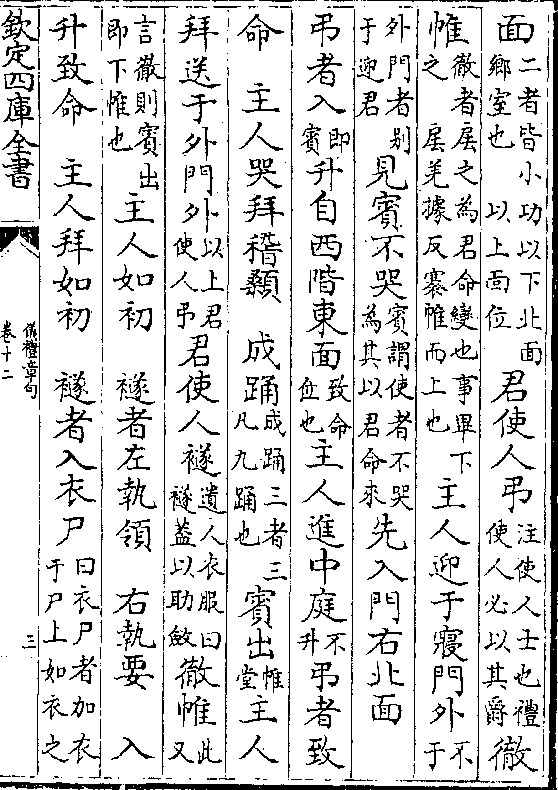 面二者皆小功以下北面鄉室也 以上面位 君使人弔注使人士也禮使人必以其爵徹
帷徹者㞐之為君命變也事畢下之 㞐羌據反褰帷而上也 主人迎于寢門外不于
外門者别于迎君 見賓不哭賓謂使者不哭為其以君命來 先入門右北面
弔者入即賓升自西階東面致命位也 主人進中庭不升弔者致
命 主人哭拜稽顙 成踊成踊三者三凡九踊也 賓出帷堂主人
拜送于外門外以上君使人弔 君使人襚遺人衣服曰襚蓋以助斂徹帷此又
言徹則賓出即下帷也 主人如初 襚者左執領 右執要 入
升致命 主人拜如初 襚者入衣尸曰衣尸者加衣于尸上如衣之
欽定四庫全書
儀禮章句
卷十二
三